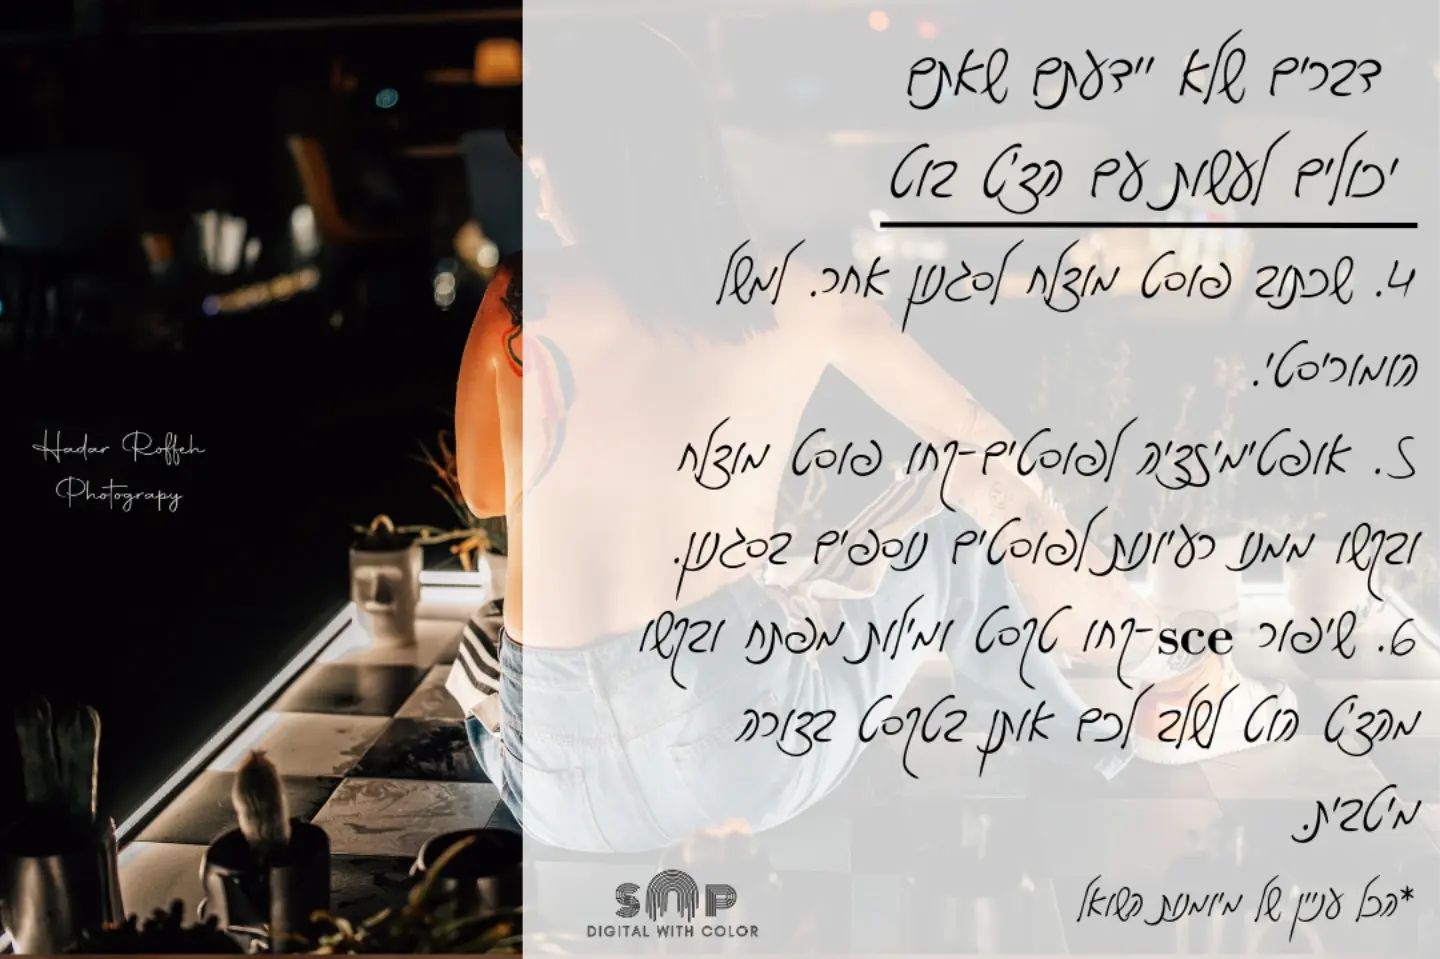 דברים שלא יידעתם שאתם
יכולים לעשות עם הצ'ט בוט
4. שכתוב פוסט מוצלח לסגנון אחר. למשל
הומוריסטי.
5. אופטימיזציה לפוסטים-קחו פוסט מוצלח
ובקשו ממנו רעיונות לפוסטים נוספים בסגנון.
6. שיפור sce-קחו טקסט ומילות מפתח ובקשו
מהצ'ט הוט לשלב לכם אותן בטקסט בצורה
מיטבית.
*הכל עניין של מיומנות השואל
Hadar Roffeh
Photograpy
SNP
DIGITAL WITH COLOR